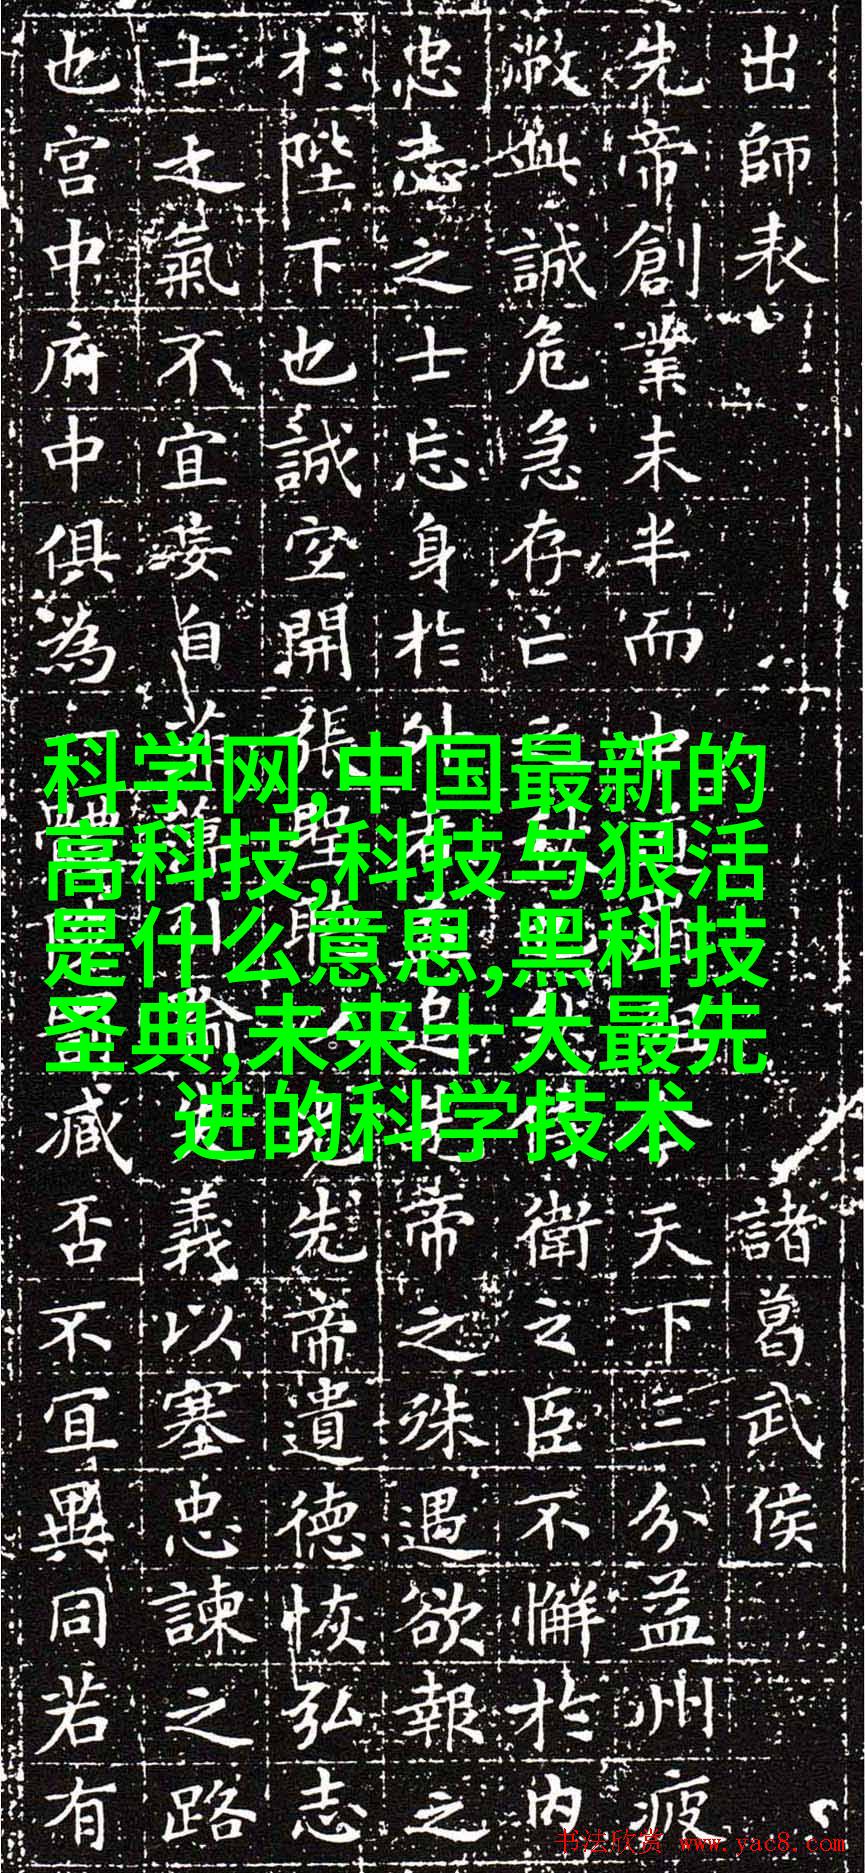 出師表 諸葛武侯
先帝創業未半而 天下三分益州疲
敝 誠危急存亡 衛之臣不懈於內
忠志之士忘身於外者 追先帝之殊遇欲報之
於陛下也誠空開張聖 先帝遺德恢弘志
士之氣不宜妄自菲薄引喻 義以塞忠諫之路
也宮中府中俱為 臧否不宜異同若有
科学网,中国最新的
高科技,科技与狠活
是什么意思,黑科技
圣典,未来十大最先
进的科学技术
书法欣赏 www.yac8.com